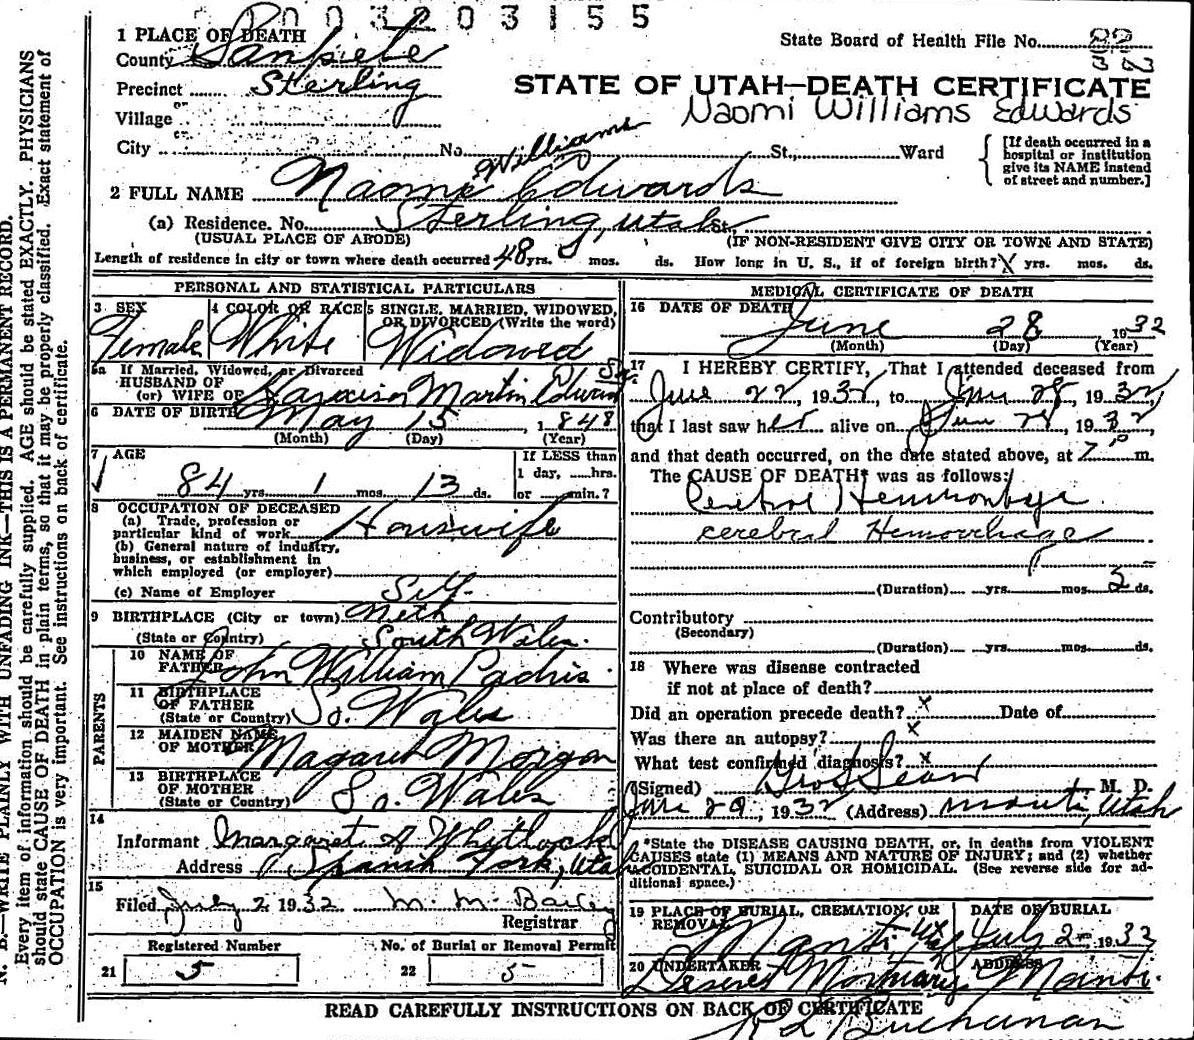 0003203155
1 PLACE OF DEATH
County Sanpete
State Board of Health File No.
Precinct Sterling
STATE OF UTAH—DEATH CERTIFICATE
Village
or
Naomi Williams Edwards
City No. St., Ward
or
[If death occurred in a
hospital or institution
give its NAME instead
of street and number.]
Williams
2 FULL NAME Naomi Edwards
(a) Residence. No. Sterling, Utah St.
(USUAL PLACE OF ABODE) (IF NON-RESIDENT GIVE CITY OR TOWN AND STATE)
Length of residence in city or town where death occurred 48 yrs. mos. ds. How long in U. S., if of foreign birth? X yrs. mos. ds.
PERSONAL AND STATISTICAL PARTICULARS
3 SEX
Female
4 COLOR OR RACE
White
5 SINGLE, MARRIED, WIDOWED,
OR DIVORCED (Write the word)
Widowed
5a If Married, Widowed, or Divorced
HUSBAND OF
(or) WIFE OF Harrison Martin Edwards Sr.
6 DATE OF BIRTH May 15, 1848
(Month) (Day) (Year)
7 AGE
84 yrs. 1 mos. 13 ds.
If LESS than
1 day, hrs.
or min.?
8 OCCUPATION OF DECEASED
(a) Trade, profession or
particular kind of work Housewife
(b) General nature of industry,
business, or establishment in
which employed (or employer)
(c) Name of Employer Self
9 BIRTHPLACE (City or town) Neth
(State or Country) South Wales.
PARENTS
10 NAME OF
FATHER John William Padris
11 BIRTHPLACE
OF FATHER
(State or Country) So. Wales
12 MAIDEN NAME
OF MOTHER Magaret Morgan
13 BIRTHPLACE
OF MOTHER
(State or Country) So. Wales
14
Informant Margaret A Whitlock
Address Spanish Fork, Utah
15
Filed July 2, 1932 M. M. Bailey
Registrar
Registered Number
21 5
No. of Burial or Removal Permit
22 5
MEDICAL CERTIFICATE OF DEATH
16 DATE OF DEATH
June 28 1932
(Month) (Day) (Year)
17 I HEREBY CERTIFY, That I attended deceased from
June 22, 1932, to June 28, 1932,
that I last saw her alive on June 28, 1932,
and that death occurred, on the date stated above, at 7 P m.
The CAUSE OF DEATH* was as follows:
Cerebral Hemorrhage
cerebral Hemorrhage
(Duration) yrs. mos. 5 ds.
Contributory
(Secondary)
(Duration) yrs. mos. ds.
18 Where was disease contracted
if not at place of death?
Did an operation precede death? x Date of
Was there an autopsy? x
What test confirmed diagnosis? x
(Signed) M. D.
June 29, 1932 (Address) Manti, Utah
*State the DISEASE CAUSING DEATH, or, in deaths from VIOLENT
CAUSES state (1) MEANS AND NATURE OF INJURY; and (2) whether
ACCIDENTAL, SUICIDAL OR HOMICIDAL. (See reverse side for ad-
ditional space.)
19 PLACE OF BURIAL, CREMATION, OR
REMOVAL
Manti Utah
DATE OF BURIAL
July 2 - 1932
20 UNDERTAKER
Deseret Mortuary
ADDRESS
Manti.
READ CAREFULLY INSTRUCTIONS ON BACK OF CERTIFICATE
R L Buchanan
N. B.—WRITE PLAINLY WITH UNFADING INK—THIS IS A PERMANENT RECORD.
Every item of information should be carefully supplied. AGE should be stated EXACTLY. PHYSICIANS
should state CAUSE OF DEATH in plain terms, so that it may be properly classified. Exact statement of
OCCUPATION is very important. See instructions on back of certificate.